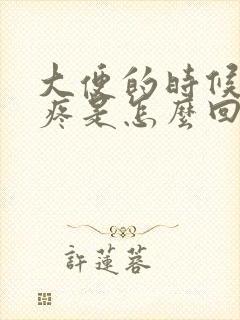 大便的時候
疼是怎麼回
許蓮蓉